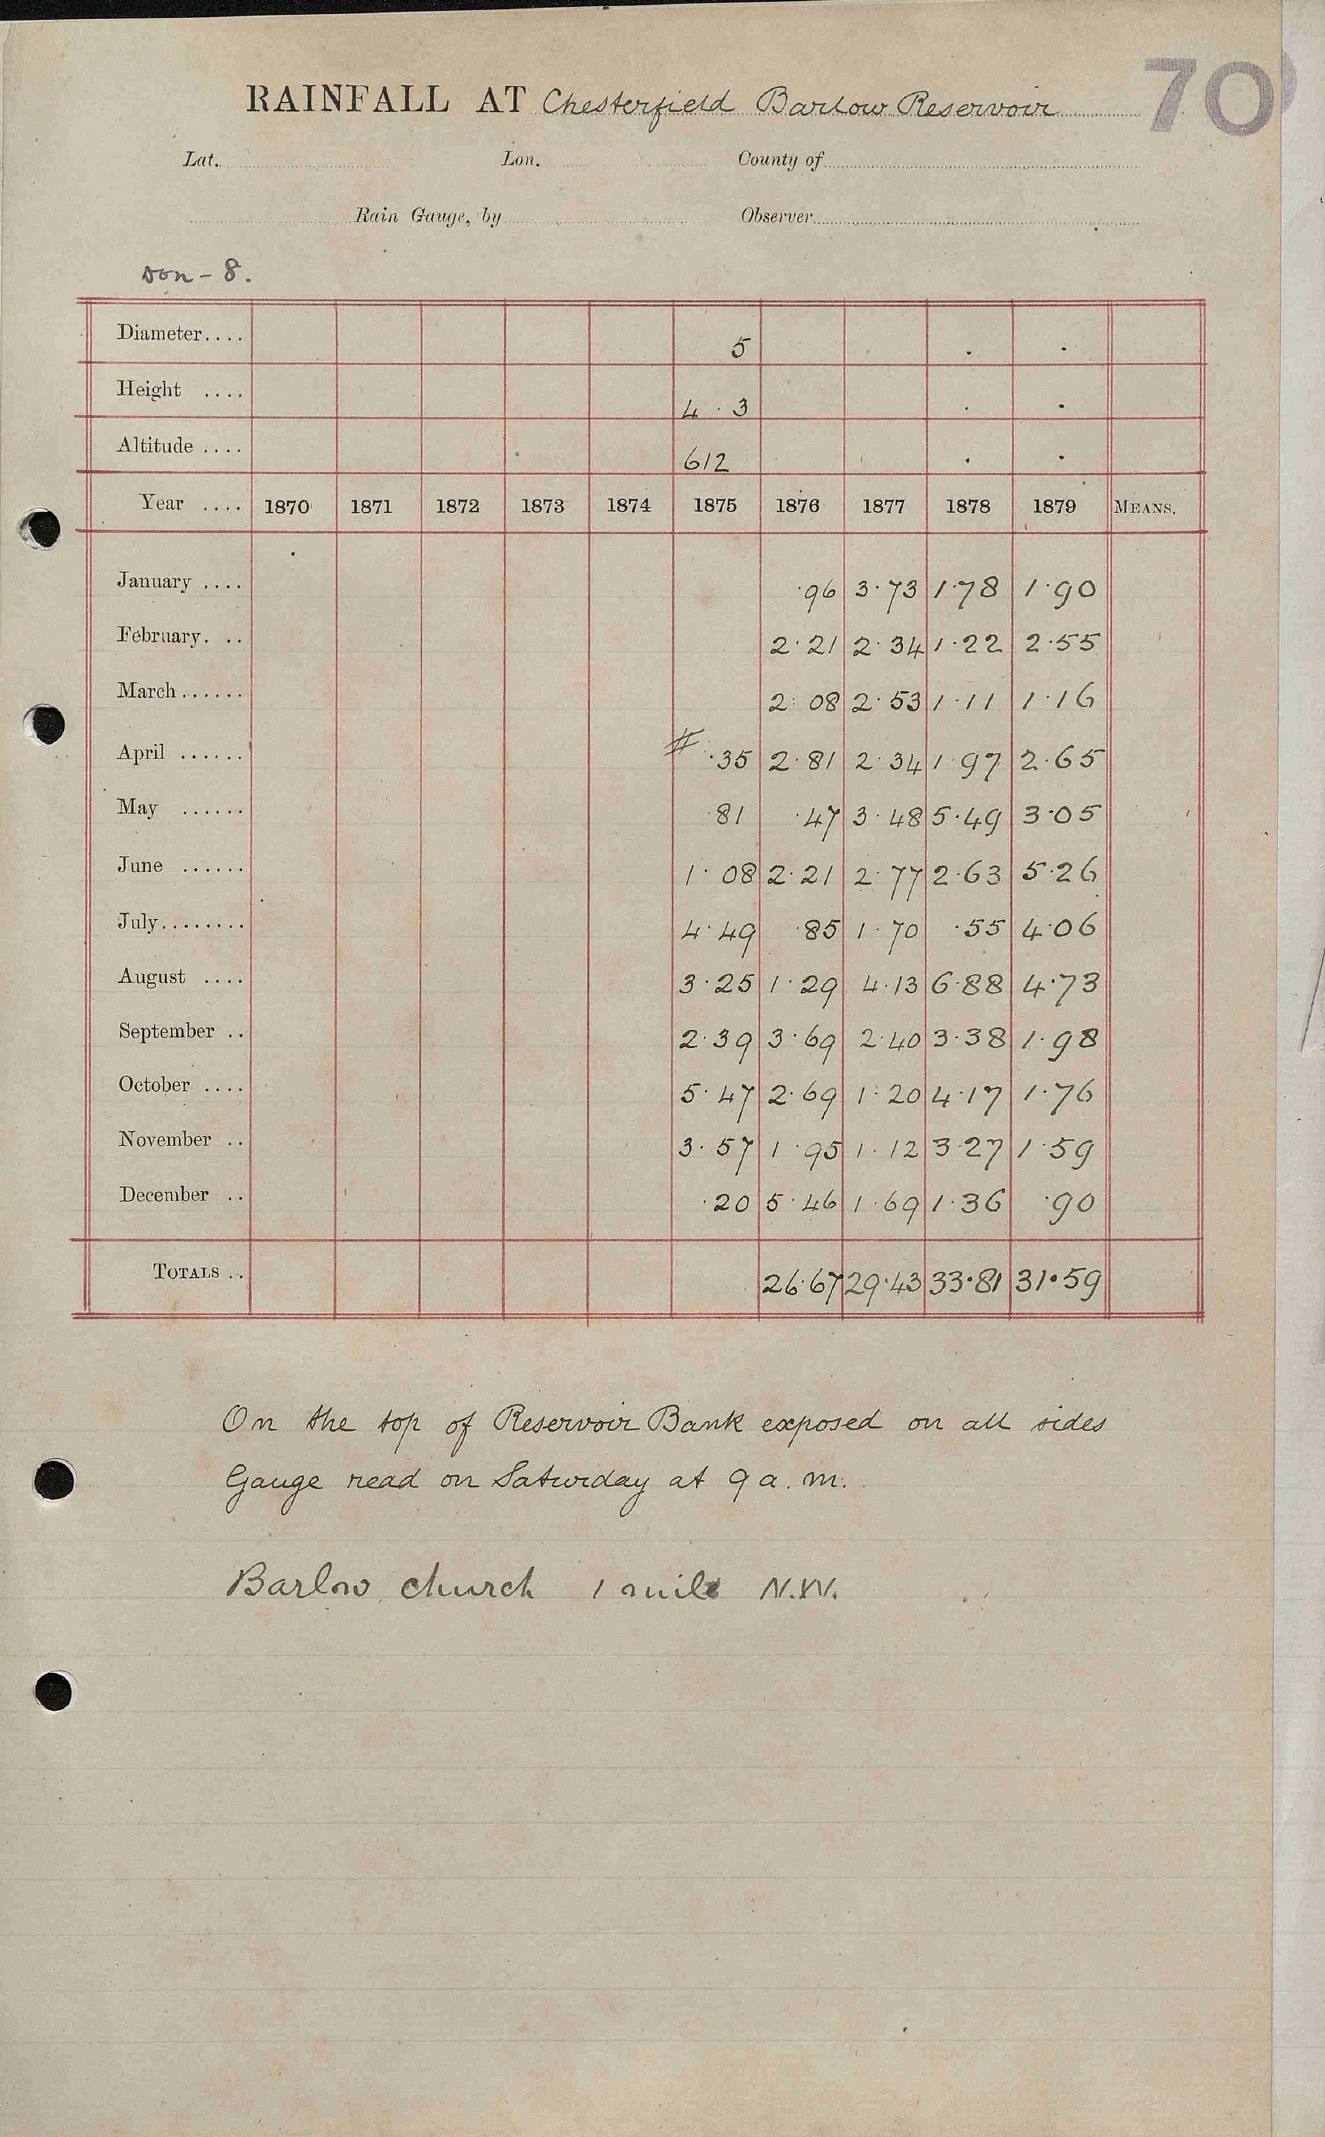 70
RAINFALL AT Chesterfield Barlow Reservoir
Lat. Lon. County of
Rain Gauge, by Observer
Don - 8.
Diameter.... 5 . .
Height .... 4 . 3 . .
Altitude .... 612 . .
Year .... 1870 1871 1872 1873 1874 1875 1876 1877 1878 1879 MEANS.
January .... ·96 3·73 1·78 1·90
February. .. 2·21 2·34 1·22 2·55
March...... 2·08 2·53 1·11 1·16
April ...... # ·35 2·81 2·34 1·97 2·65
May ...... ·81 ·47 3·48 5·49 3·05
June ...... 1·08 2·21 2·77 2·63 5·26
July........ 4·49 ·85 1·70 ·55 4·06
August .... 3·25 1·29 4·13 6·88 4·73
September .. 2·39 3·69 2·40 3·38 1·98
October .... 5·47 2·69 1·20 4·17 1·76
November .. 3·57 1·95 1·12 3·27 1·59
December .. ·20 5·46 1·69 1·36 ·90
TOTALS .. 26·67 29·43 33·81 31·59
On the top of Reservoir Bank exposed on all sides
Gauge read on Saturday at 9 a.m.
Barlow church 1 mile N.W.